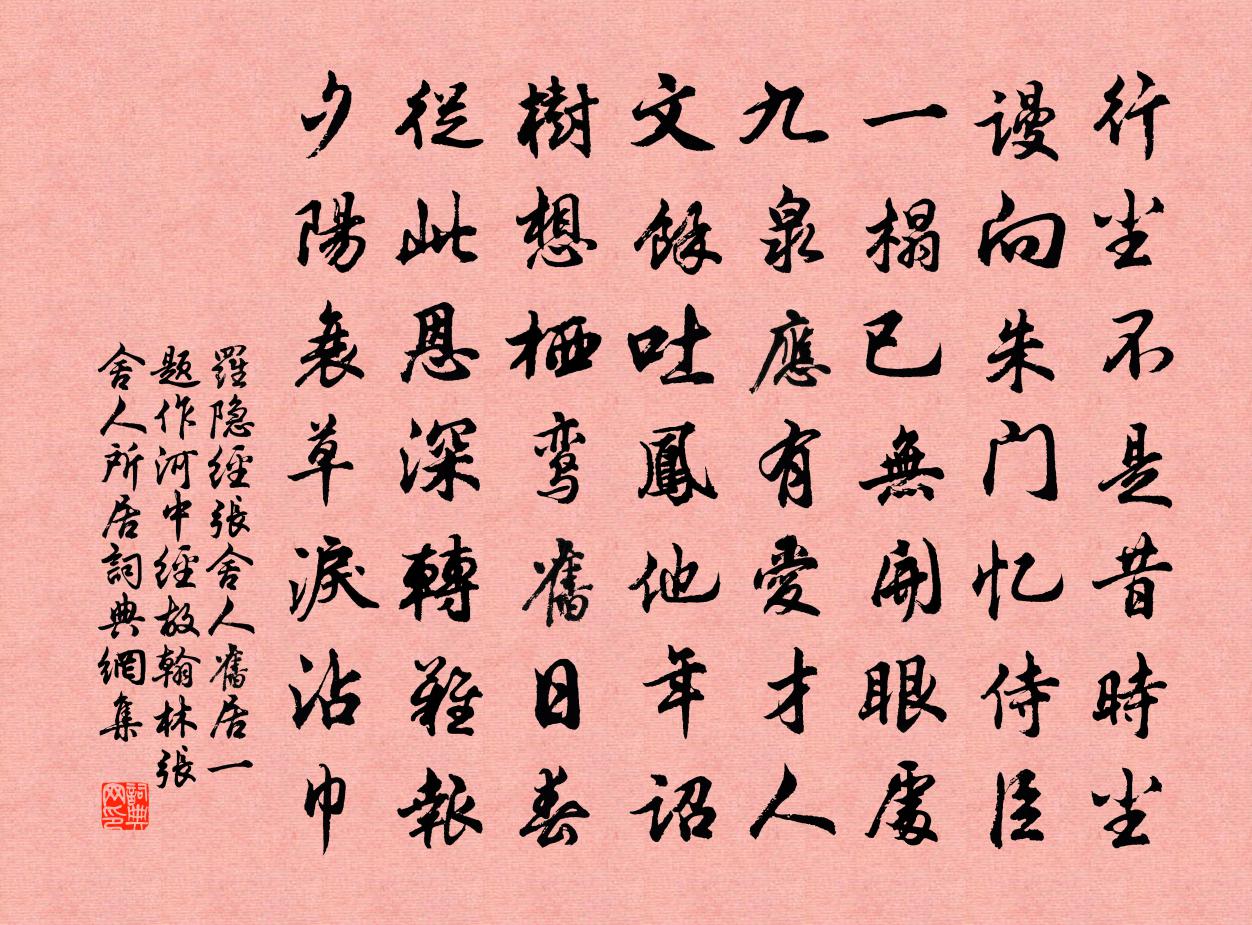 行尘不是昔時尘
谩向朱门忆侍臣
一榻已無開眼處
九泉應有愛才人
文餘吐鳳他年詔
樹想栖鸾舊日春
從此恩深轉難報
夕陽衰草淚沾巾
羅隐經張舍人舊居一
题作河中經故翰林張
舍人所居詞典網集
詞典
网印